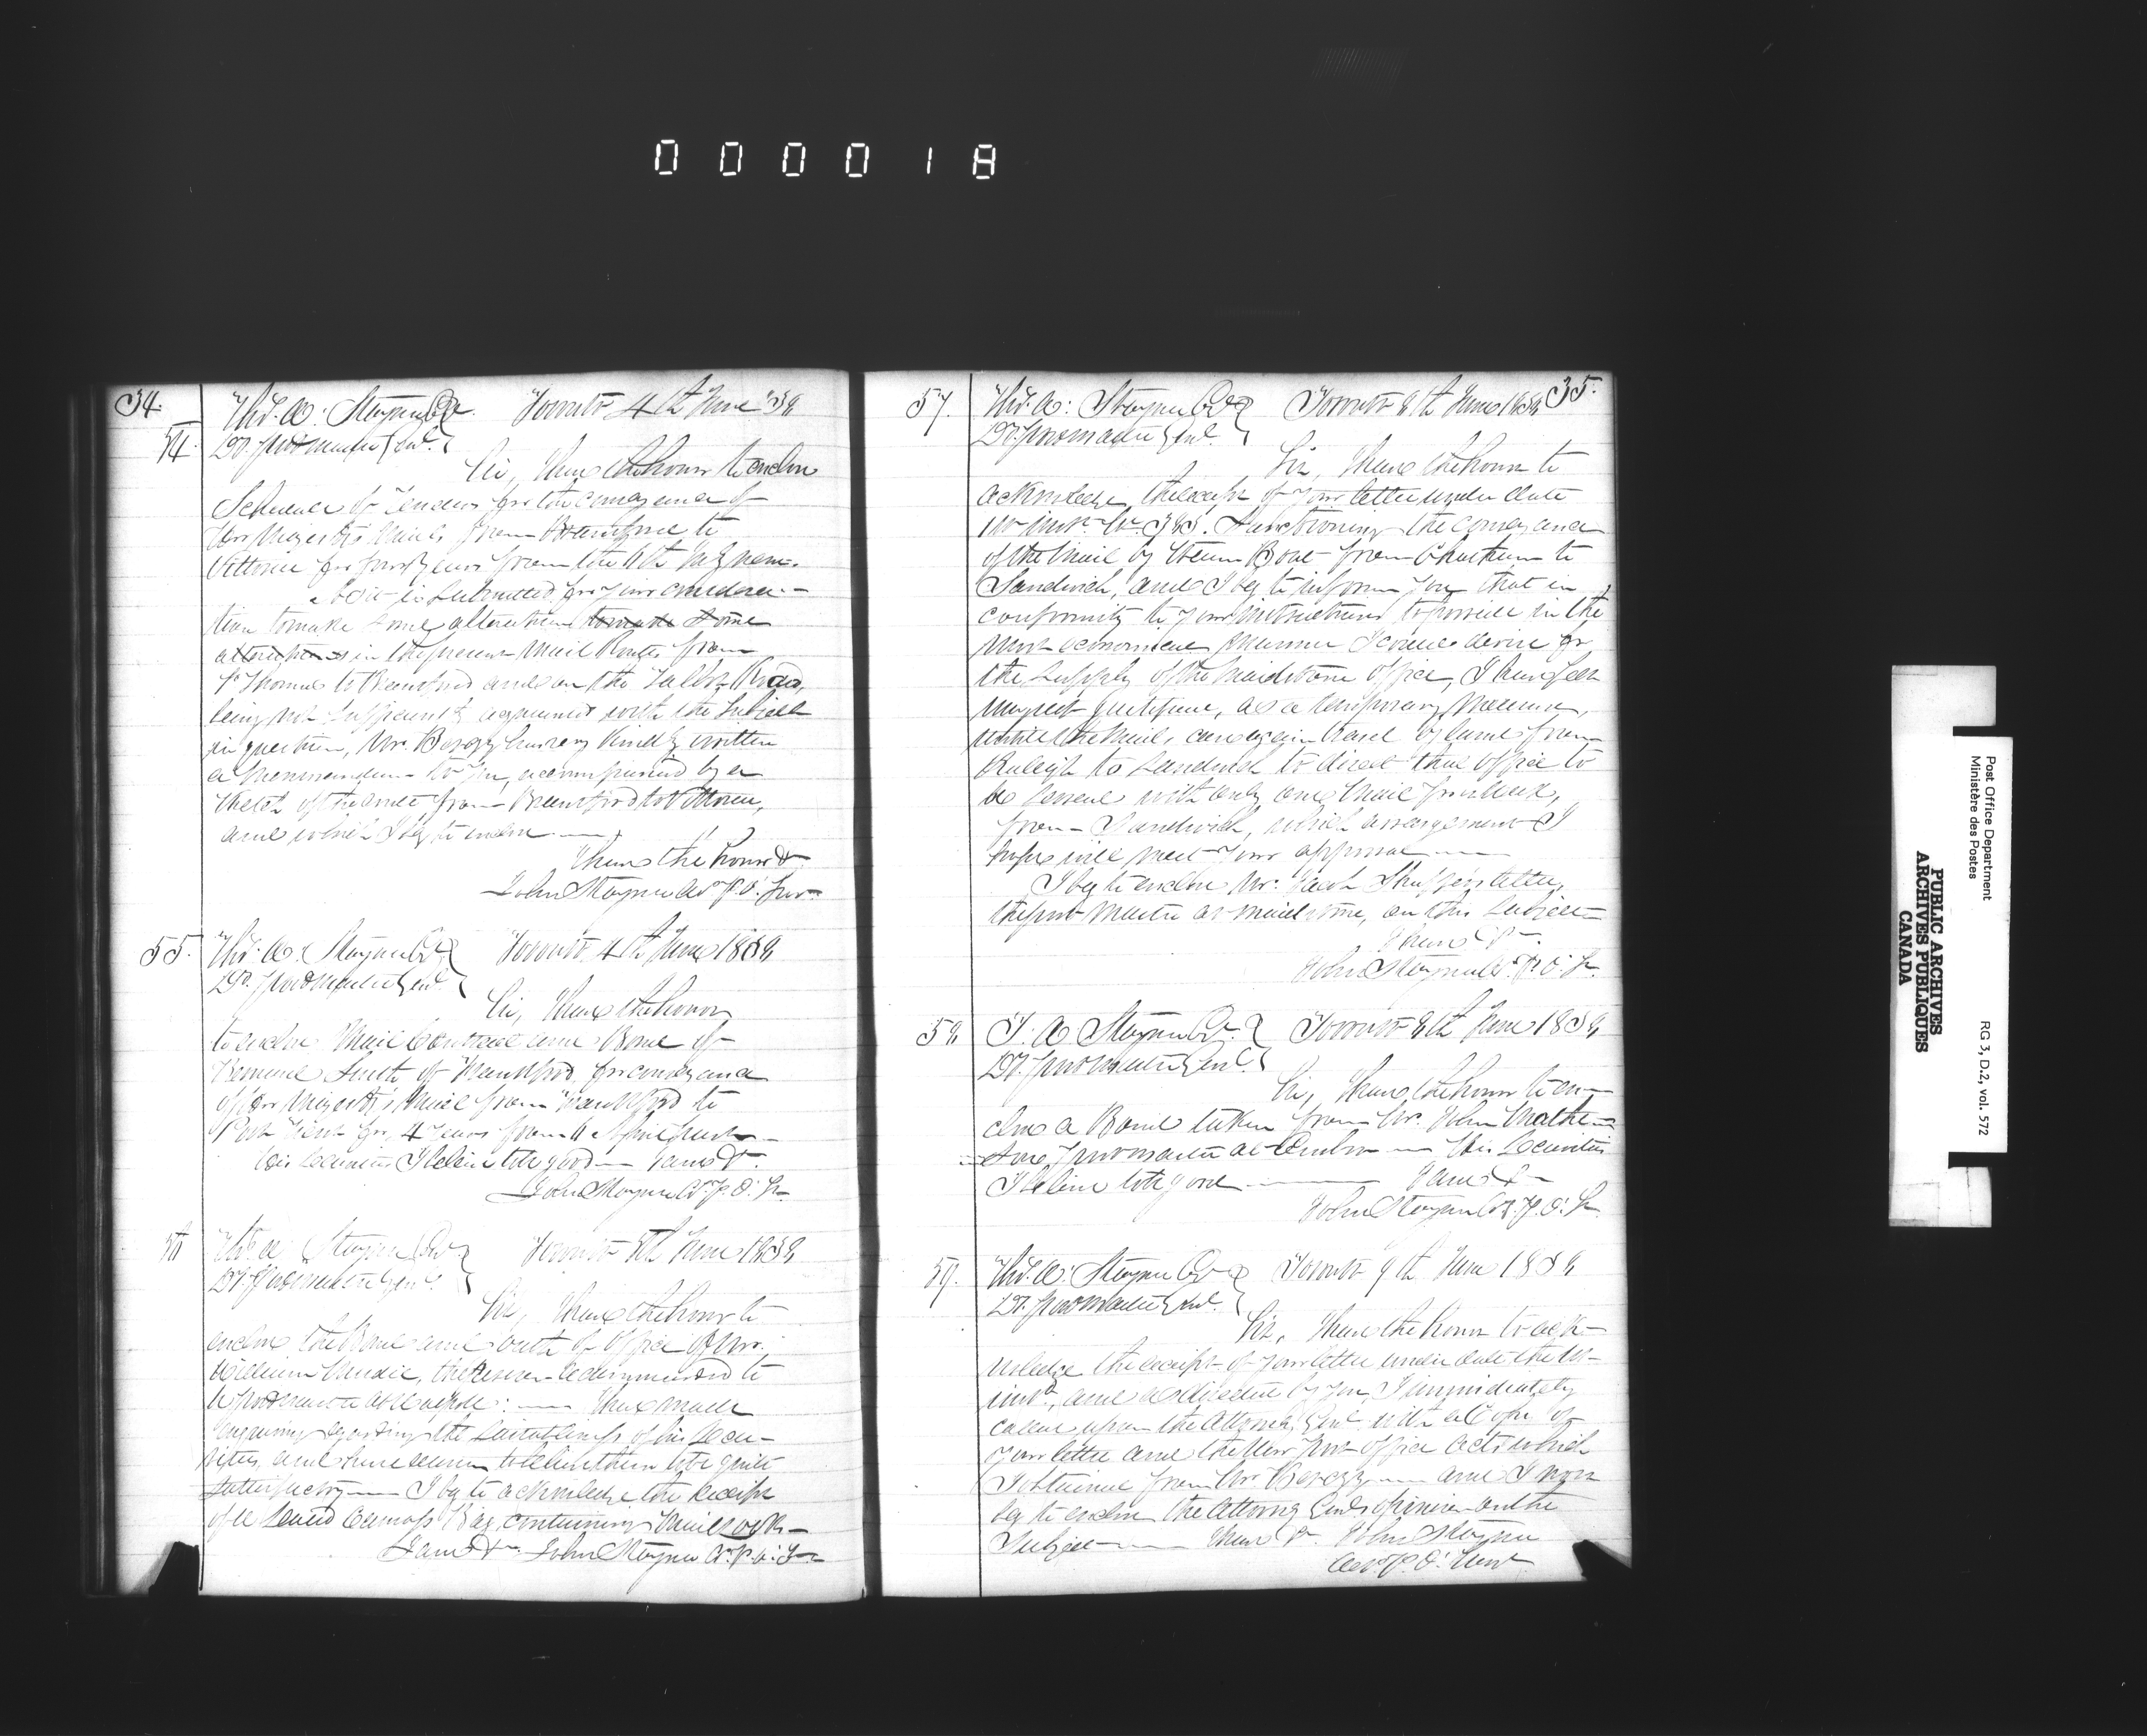 0 0 0 0 1 8
34.
54. Thos. A: Stayner Esqr. Toronto 4th June '38
Dy. Postmaster Genl.
Sir, I have the honor to enclose
Schedule of Tenders for the conveyance of
Her Majesty's Mails from Brantford to
Vittoria for four years from the 11th July next.
As it is submitted for your considera-
tion to make some alteration to make some
alterations in the present Mail Route from
St Thomas to Brantford and on the Talbot Road,
being not sufficiently acquainted with the subject
in question, Mr. Berczy having kindly written
a memorandum to you, accompanied by a
sketch of the route from Brantford to Vittoria,
and which I beg to enclose
I have the honor &
John Stayner Ac P.O. Sur
55. Thos. A: Stayner Esqr Toronto 4th June 1838
Dy. Postmaster Genl.
Sir, I have the honor
to enclose Mail Contract and Bond of
Smith of Brantford for conveyance
of Her Majesty's Mail from Brantford to
Port for 4 Years from 11 April last
His Securities I believe to be good I have &c.
John Stayner Ac P.O. Sr
56 Thos. A: Stayner Esqr Toronto 5th June 1838
Dy. Postmaster Genl.
Sir, I have the honor to
enclose the Bond and Oath of Office of Mr.
William the Person recommended to
be Postmaster at I have made
enquiry regarding the sufficiency of his Secu-
rities, and have reason to believe them to be quite
satisfactory I beg to acknowledge the receipt
of a Sealed Canvass Bag, containing
I am &c John Stayner Ac. P.O. Sr
35.
57. Thos. A: Stayner Esqr Toronto 8th June 1838
Dy. Postmaster Genl.
Sir, I have the honor to
acknowledge the receipt of your letter under date
1st inst. No 385. Sanctioning the conveyance
of the Mail by Steam Boat from Chatham to
Sandwich, and I beg to inform you that in
conformity to your instructions to provide in the
most economical manner I could devise for
the supply of the Maidstone Office, I have felt
myself justified, as a temporary measure,
until the Mails can again travel by land from
Raleigh to Sandwich to direct that office to
be served with only one Mail per Week,
from Sandwich, which arrangement I
hope will meet your approval
I beg to enclose Mr. letter,
the Post Master at Maidstone, on this subject
I have &c
John Stayner Ac. P.O. Sr
58. T. A Stayner Esqr. Toronto 8th June 1838
Dy. Postmaster Genl.
Sir, I have the honor to en-
close a Bond taken from Mr. John Mathe-
son Postmaster at Embro His Securities
I believe to be good I am &
John Stayner Ac P.O. Sr
59. Thos. A: Stayner Esqr Toronto 9th June 1838
Dy. Postmaster Genl.
Sir, I have the honor to ack-
nowledge the receipt of your letter under date the 1st
inst., and as directed by you, I immediately
called upon the Attorney Genl with a Copy of
your letter and the New Post Office Acts which
I obtained from Mr Berczy and I now
beg to enclose the Attorney Genls opinion on the
Subject I have &c John Stayner
Act. P.O. Surr
PUBLIC ARCHIVES
ARCHIVES PUBLIQUES
CANADA
Post Office Department
Ministère des Postes
RG 3, D.2, vol. 572